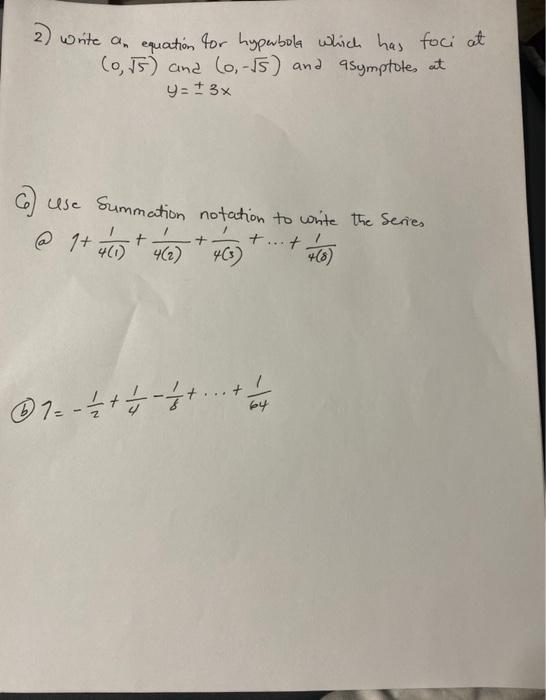 2) Write an equation for hyperbola which has foci at
(0, √5) and (0, -√5) and asymptotes at
y = ± 3x
6) Use Summation notation to write the Series
ⓐ 1 + 1/4(1) + 1/4(2) + 1/4(3) + ... + 1/4(8)
ⓑ 1 = - 1/2 + 1/4 - 1/8 + ... + 1/64